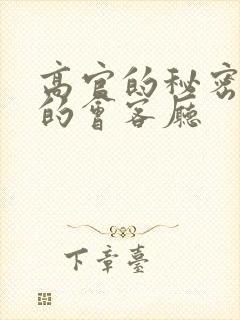 高官的秘密
的會客廳
下章臺